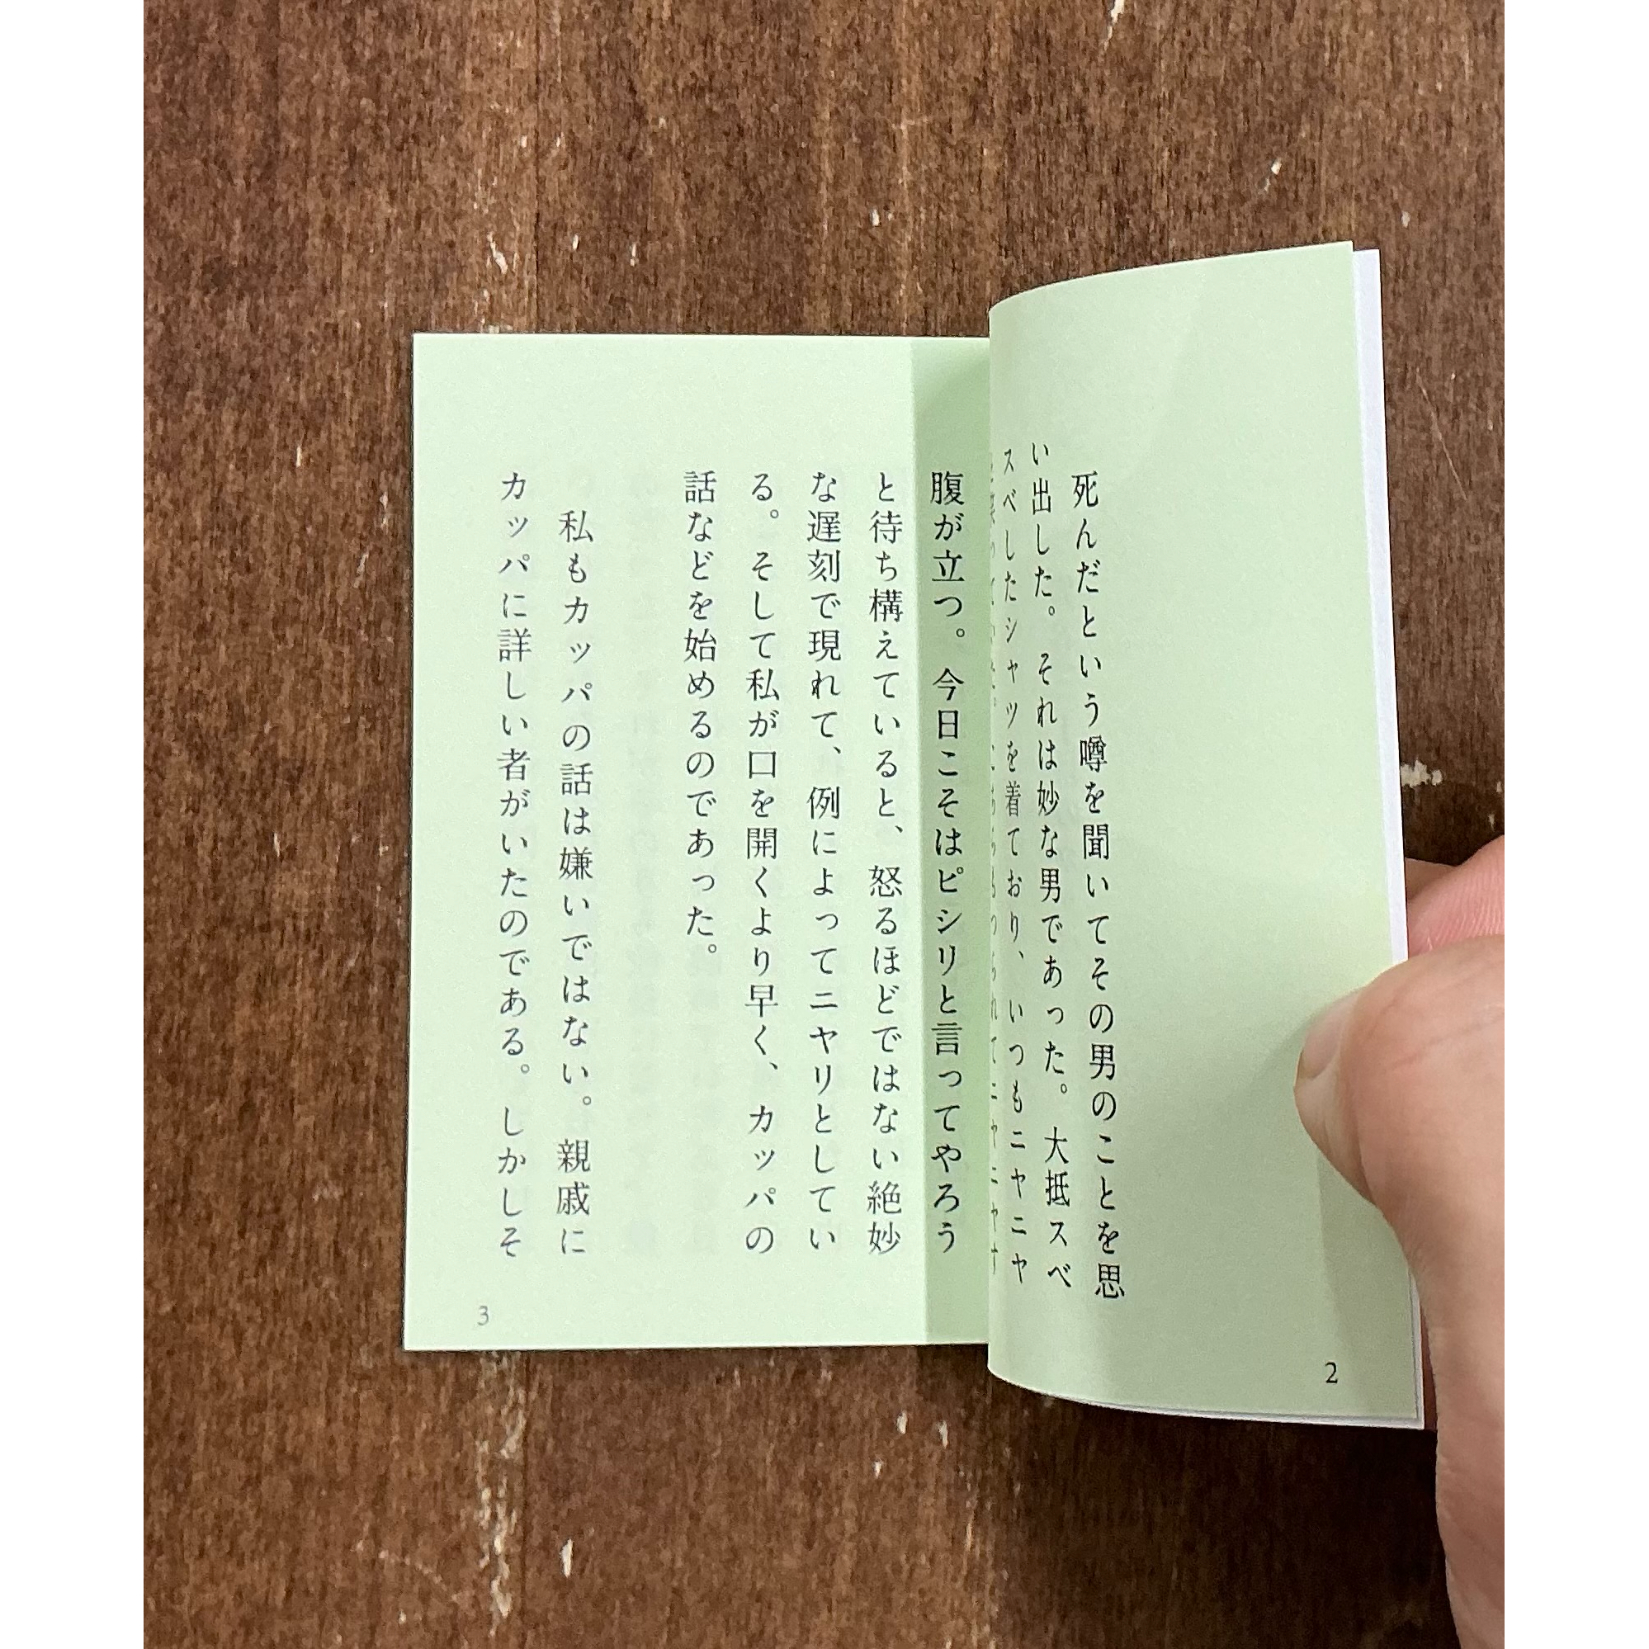 死んだという噂を聞いてその男のことを思
い出した。それは妙な男であった。大抵スベ
スベしたシャツを着ており、いつもニヤニヤ
2
腹が立つ。今日こそはピシリと言ってやろう
と待ち構えていると、怒るほどではない絶妙
な遅刻で現れて、例によってニヤリとしてい
る。そして私が口を開くより早く、カッパの
話などを始めるのであった。
私もカッパの話は嫌いではない。親戚に
カッパに詳しい者がいたのである。しかしそ
3